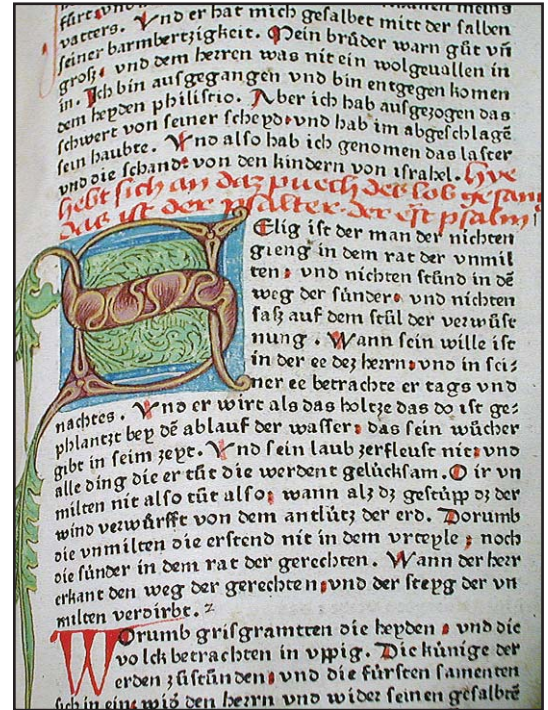 fürt vnd
vatters. Vnd er hat mich gesalbet mitt der salben
seiner barmhertzigkeit. Mein brüder warn güt vñ
groß, vnd dem herren was nit ein wolgeuallen in
in. Ich bin ausgegangen vnd bin entgegen komen
dem heyden philistio. Aber ich hab ausgezogen das
schwert von seiner scheyd, vnd hab im abgeschlagē
sein haubte. Vnd also hab ich genomen das laster
vnd die schand, von den kindern von israhel. Hye
hebt sich an daz puech des lob gesan
das ist der psalter. der erst psalm
SElig ist der man der nichten
gieng in dem rat der vnmil
ten, vnd nichten stünd in dē
weg der sünder, vnd nichten
saß auf dem stül der verwüst
nung. Wann sein wille ist
in der ee dez herrn, vnd in sei⸗
ner ee betrachte er tags vnd
nachtes. Vnd er wirt als das holtze das do ist ge⸗
phlantzt bey dē ablauf der wasser, das sein wücher
gibt in seim zeyt. Vnd sein laub zerfleust nit, vnd
alle ding die er tüt die werdent gelücksam. O ir vn
milten nit also tüt also, wann alz dz gestüpp dz der
wind verwürfft von dem antlütz der erd. Dorumb
die vnmilten die erstend nit in dem vrteyle, noch
die sünder in dem rat der gerechten. Wann der herr
erkant den weg der gerechten, vnd der steyg der vn
milten verdirbt. 2
WOrumb grisgramtten die heyden, vnd die
volck betrachten in vppig. Die künige der
erden züstünden, vnd die fürsten samenten
sich in ein, wid̄ den herrn vnd wider seinen gesalbtē